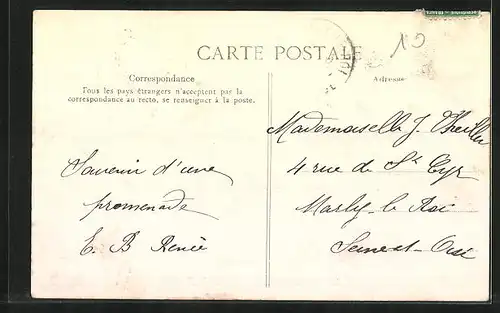 CARTE POSTALE
Correspondance
Tous les pays étrangers n'acceptent pas la
correspondance au recto, se renseigner à la poste.
Adresse
19
Souvenir d'une
promenade
E. B Renée
Mademoiselle J.
4 rue de St Cyr
Marly-le Roi
Seine et-Oise